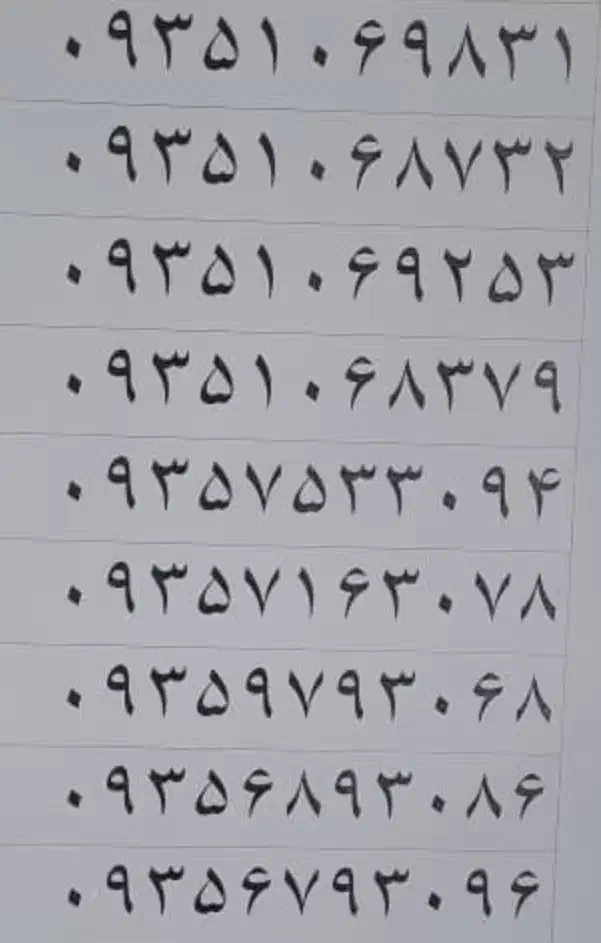 ۰۹۳۵۱۰۶۹۸۳۱
۰۹۳۵۱۰۶۸۷۳۲
۰۹۳۵۱۰۶۹۲۵۳
۰۹۳۵۱۰۶۸۳۷۹
۰۹۳۵۷۵۳۳۰۹۴
۰۹۳۵۷۱۶۳۰۷۸
۰۹۳۵۹۷۹۳۰۶۸
۰۹۳۵۶۸۹۳۰۸۶
۰۹۳۵۶۷۹۳۰۹۶